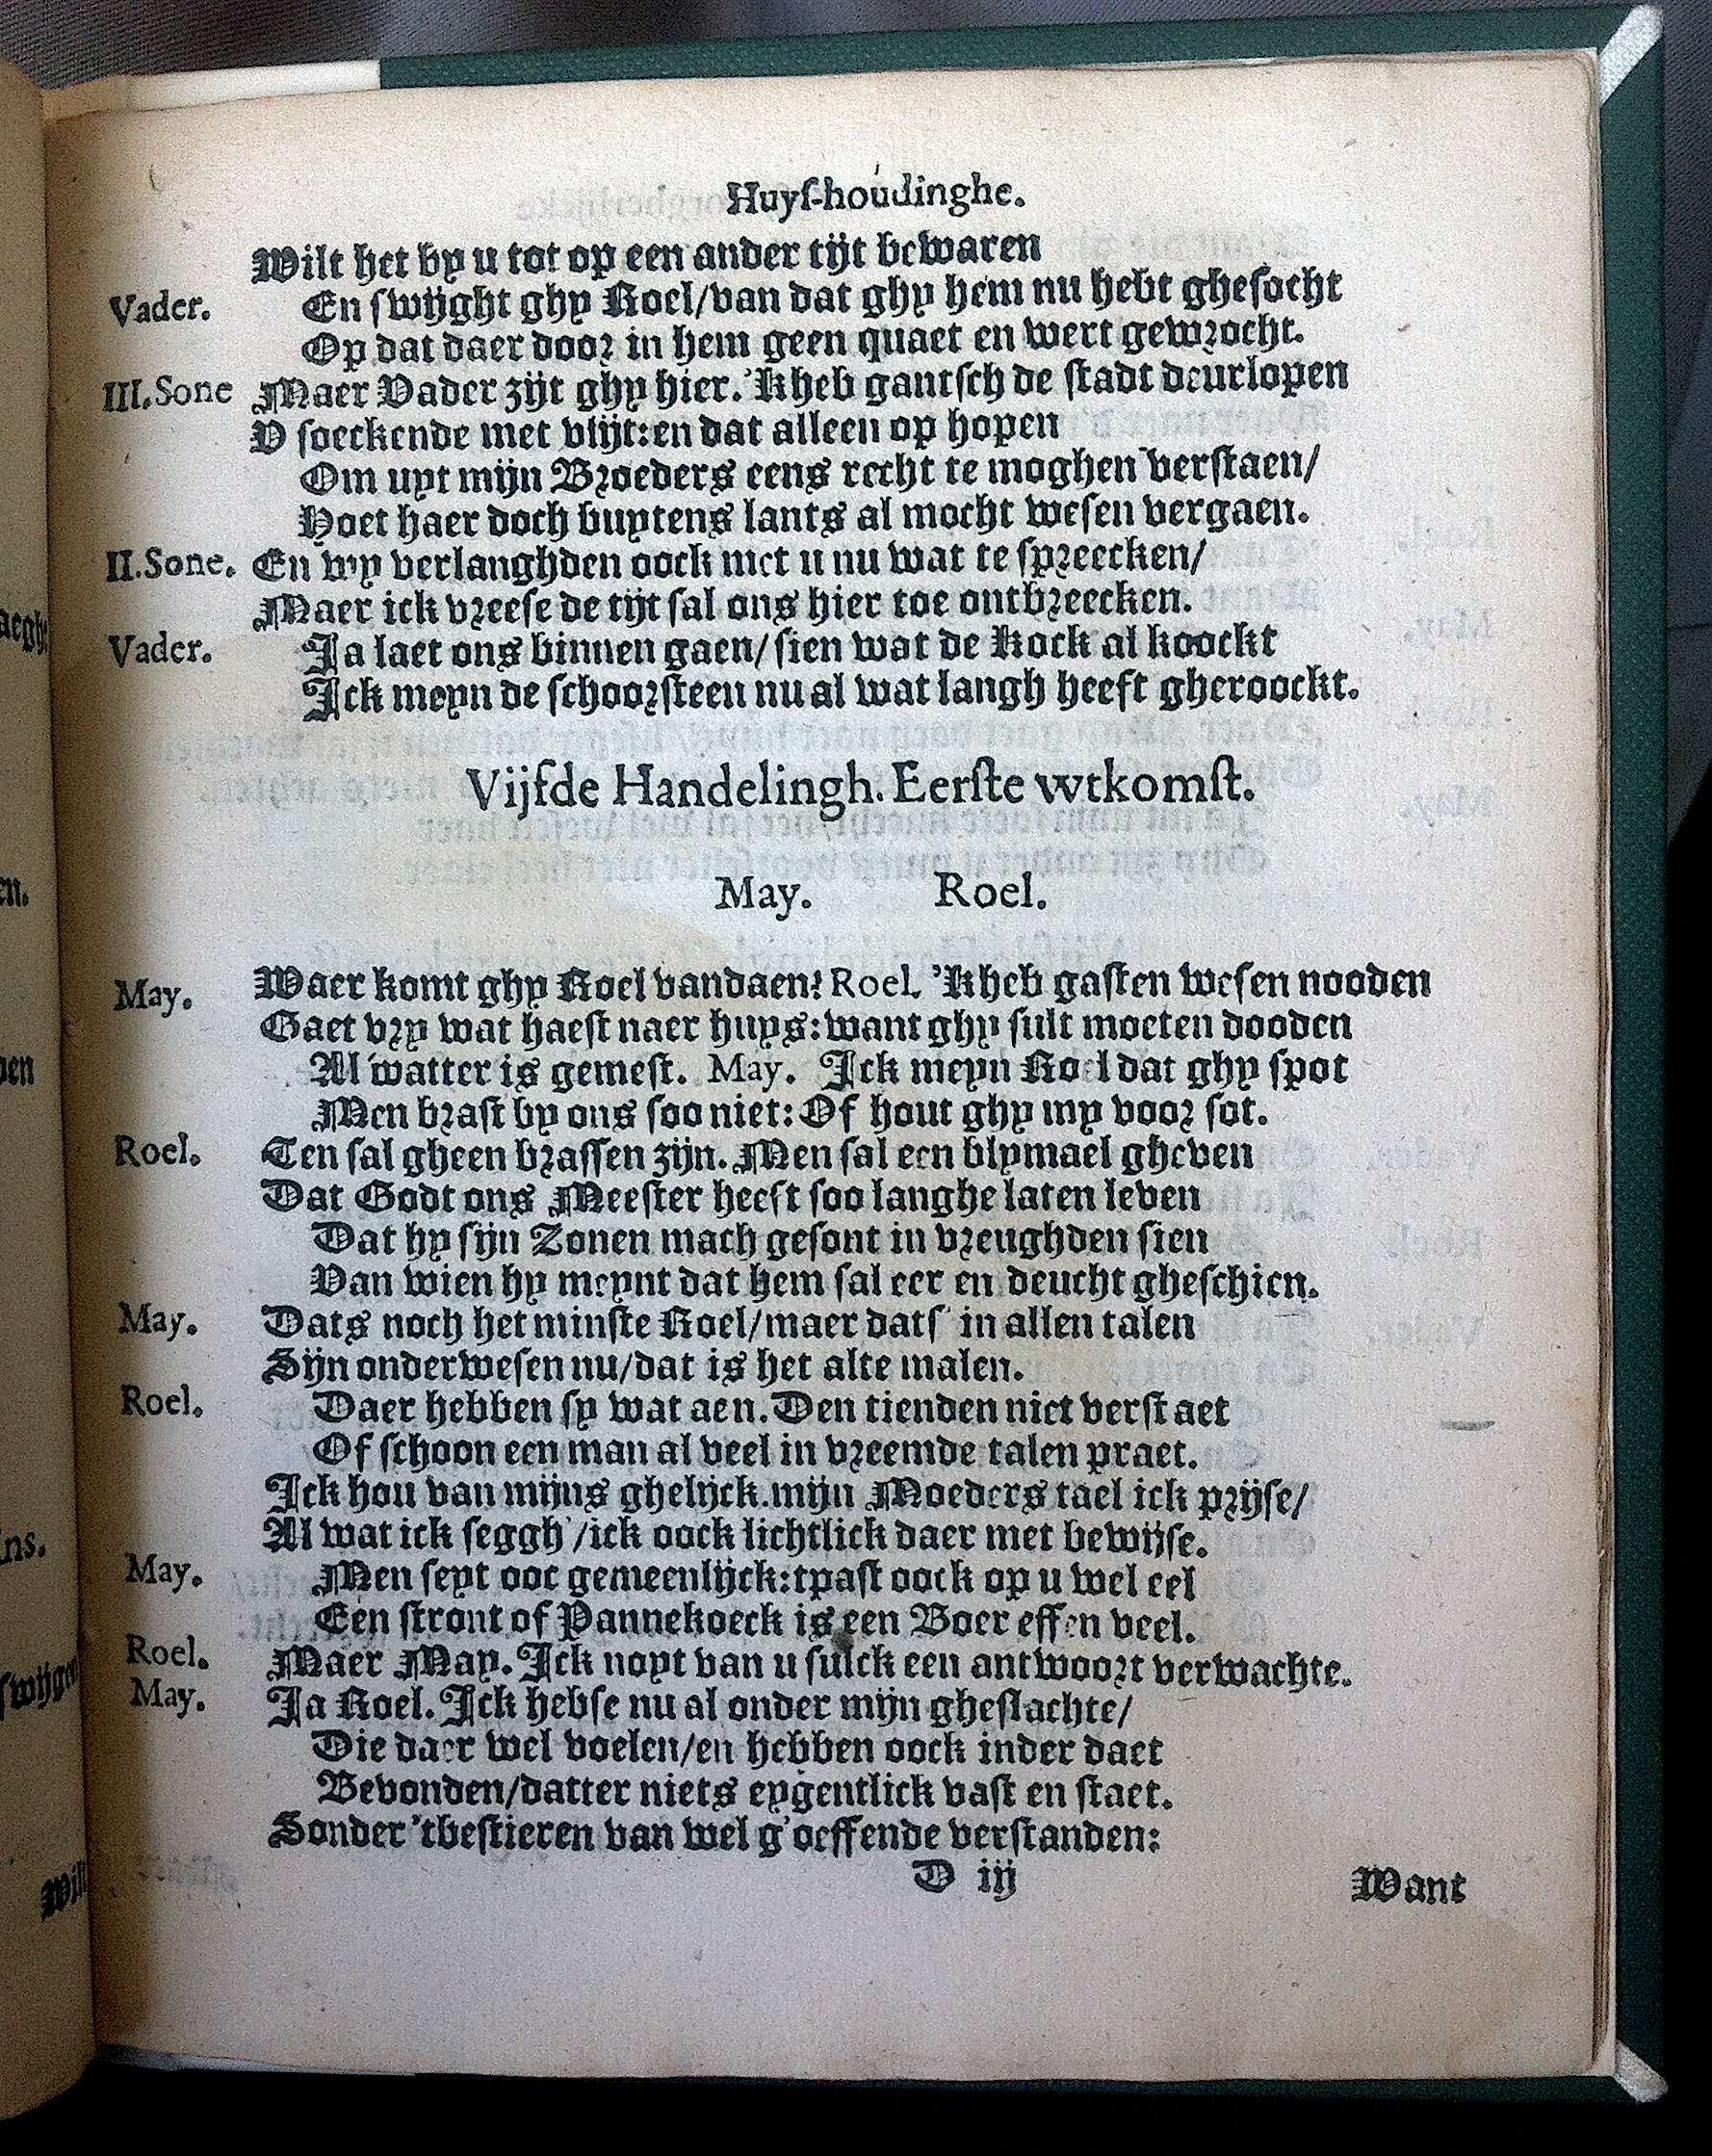 Huyſ-houdinghe.
Wilt het by u tot op een ander tijt bewaren
Vader. En ſwijght ghy Roel/van dat ghy hem nu hebt gheſocht
Op dat daer door in hem geen quaet en wert gewrocht.
III.Sone Maer Vader zijt ghy hier. 'Kheb gantſch de ſtadt deurlopen
V ſoeckende met vlijt:en dat alleen op hopen
Om uyt mijn Broeders eens recht te moghen verſtaen/
Hoet haer doch buytens lants al mocht weſen vergaen.
II.Sone. En wy verlanghden oock met u nu wat te ſpreecken/
Maer ick vreeſe de tijt ſal ons hier toe ontbreecken.
Vader. Ja laet ons binnen gaen/ ſien wat de Kock al koockt
Ick meyn de ſchoorſteen nu al wat langh heeft gheroockt.
Vijfde Handelingh. Eerſte wtkomſt.
May. Roel.
May. Waer komt ghy Roel vandaen? Roel. 'Kheb gaſten weſen nooden
Gaet vry wat haeſt naer huys:want ghy ſult moeten dooden
Al watter is gemeſt. May. Ick meyn Roel dat ghy ſpot
Men braſt by ons ſoo niet: Of hout ghy my voor ſot.
Roel. Ten ſal gheen braſſen zijn. Men ſal een blymael gheven
Dat Godt ons Meeſter heeft ſoo langhe laten leven
Dat hy ſijn Zonen mach geſont in vreughden ſien
Van wien hy meynt dat hem ſal eer en deucht gheſchien.
May. Dats noch het minſte Roel/maer datſ' in allen talen
Sijn onderweſen nu/dat is het alte malen.
Roel. Daer hebben ſy wat aen. Den tienden niet verſtaet
Of ſchoon een man al veel in vreemde talen praet.
Ick hou van mijns ghelijck.mijn Moeders tael ick prijſe/
Al wat ick ſeggh'/ick oock lichtlick daer met bewijſe.
May. Men ſeyt ooc gemeenlijck:tpaſt oock op u wel eel
Een ſtront of Pannekoeck is een Boer effen veel.
Roel. Maer May. Ick noyt van u ſulck een antwoort verwachte.
May. Ja Roel. Ick hebſe nu al onder mijn gheſlachte/
Die daer wel voelen/en hebben oock inder daet
Bevonden/datter niets eygentlick vaſt en ſtaet.
Sonder 'tbeſtieren van wel g'oeffende verſtanden:
D iij
Want